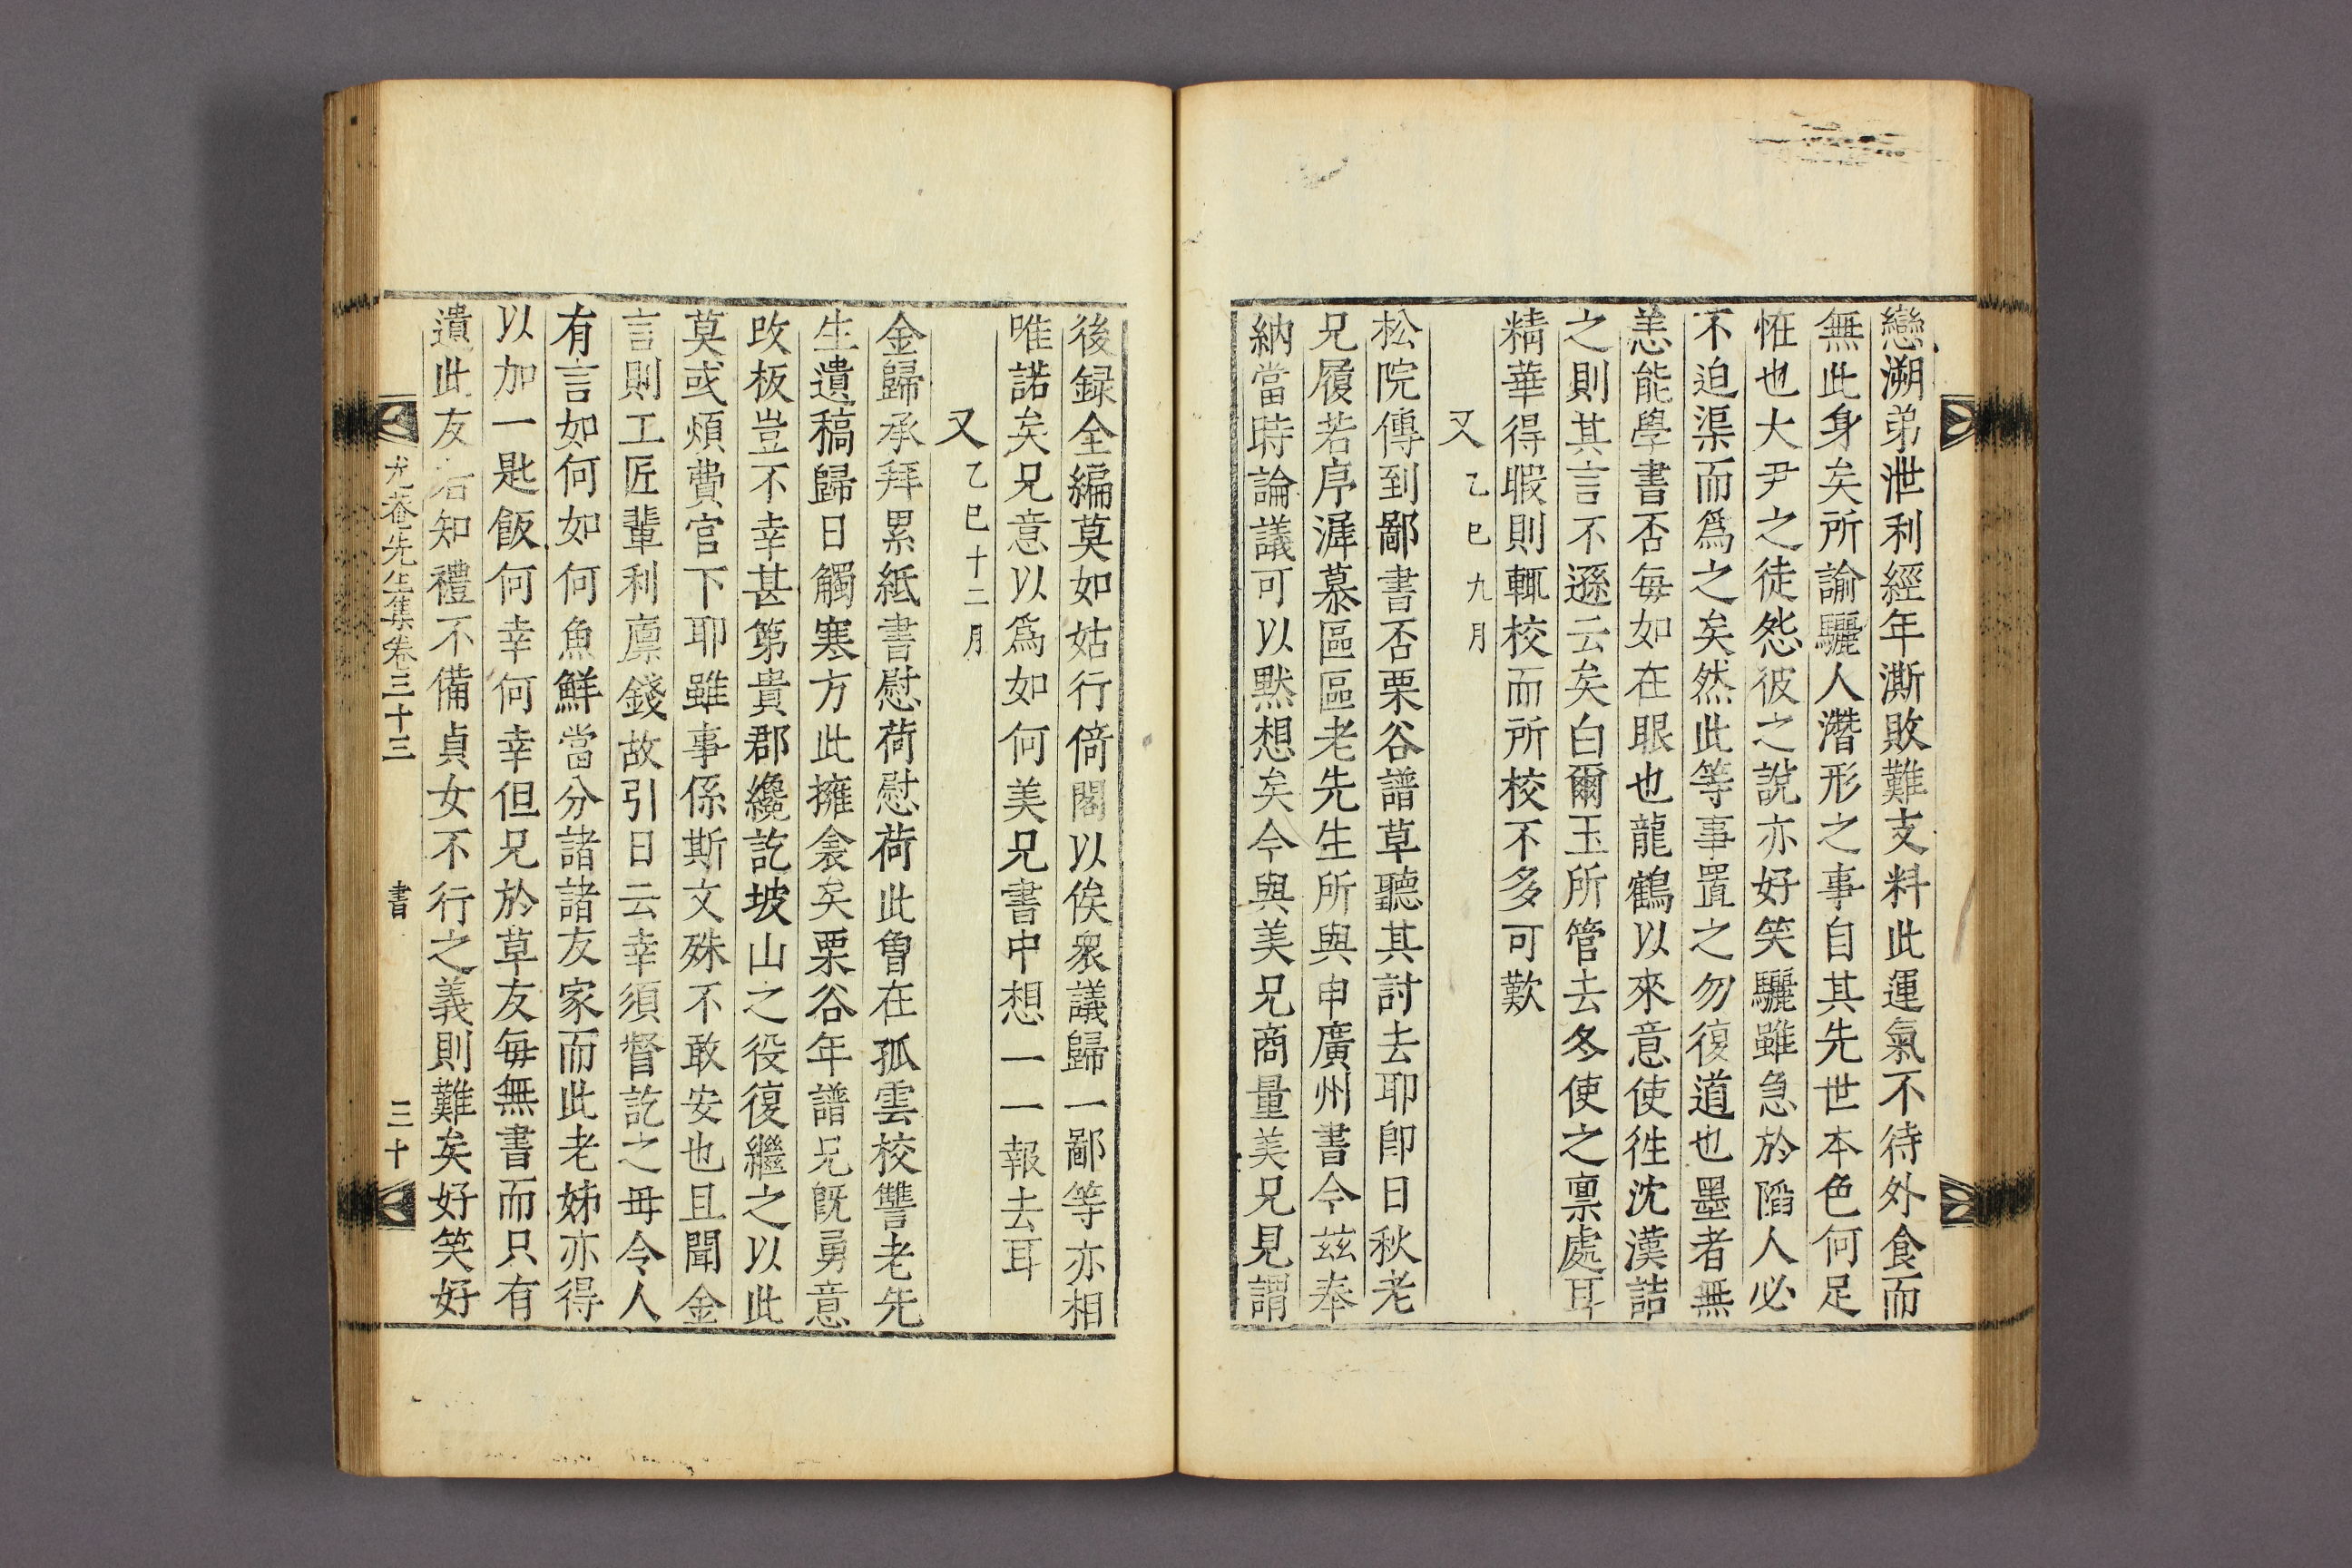 戀溯弟泄利經年澌敗難支料此運氣不待外食而
無此身矣所諭驪人潛形之事自其先世本色何足
恠也大尹之徒怨彼之說亦好笑驪雖急於陷人必
不迫渠而爲之矣然此等事置之勿復道也墨者無
恙能學書否每如在眼也龍鶴以來意使徃沈漢詰
之則其言不遜云矣白爾玉所管去冬使之稟處耳
精華得暇則輒校而所校不多可歎
又乙巳九月
松院傳到鄙書否栗谷譜草聽其討去耶卽日秋老
兄履若序溽慕區區老先生所與申廣州書今玆奉
納當時論議可以默想矣今與美兄商量美兄見謂
後録全編莫如姑行倚閣以俟衆議歸一鄙等亦相
唯諾矣兄意以爲如何美兄書中想一一報去耳
又乙巳十二月
金歸承拜累紙書慰荷慰荷此曾在孤雲校讐老先
生遺稿歸日觸寒方此擁衾矣栗谷年譜兄旣勇意
改板豈不幸甚第貴郡纔訖坡山之役復繼之以此
莫或煩費官下耶雖事係斯文殊不敢安也且聞金
言則工匠輩利廩錢故引日云幸須督訖之毋令人
有言如何如何魚鮮當分諸諸友家而此老姊亦得
以加一匙飯何幸何幸但兄於草友每無書而只有
遺此友若知禮不備貞女不行之義則難矣好笑好
尤菴先生集卷三十三 書 三十